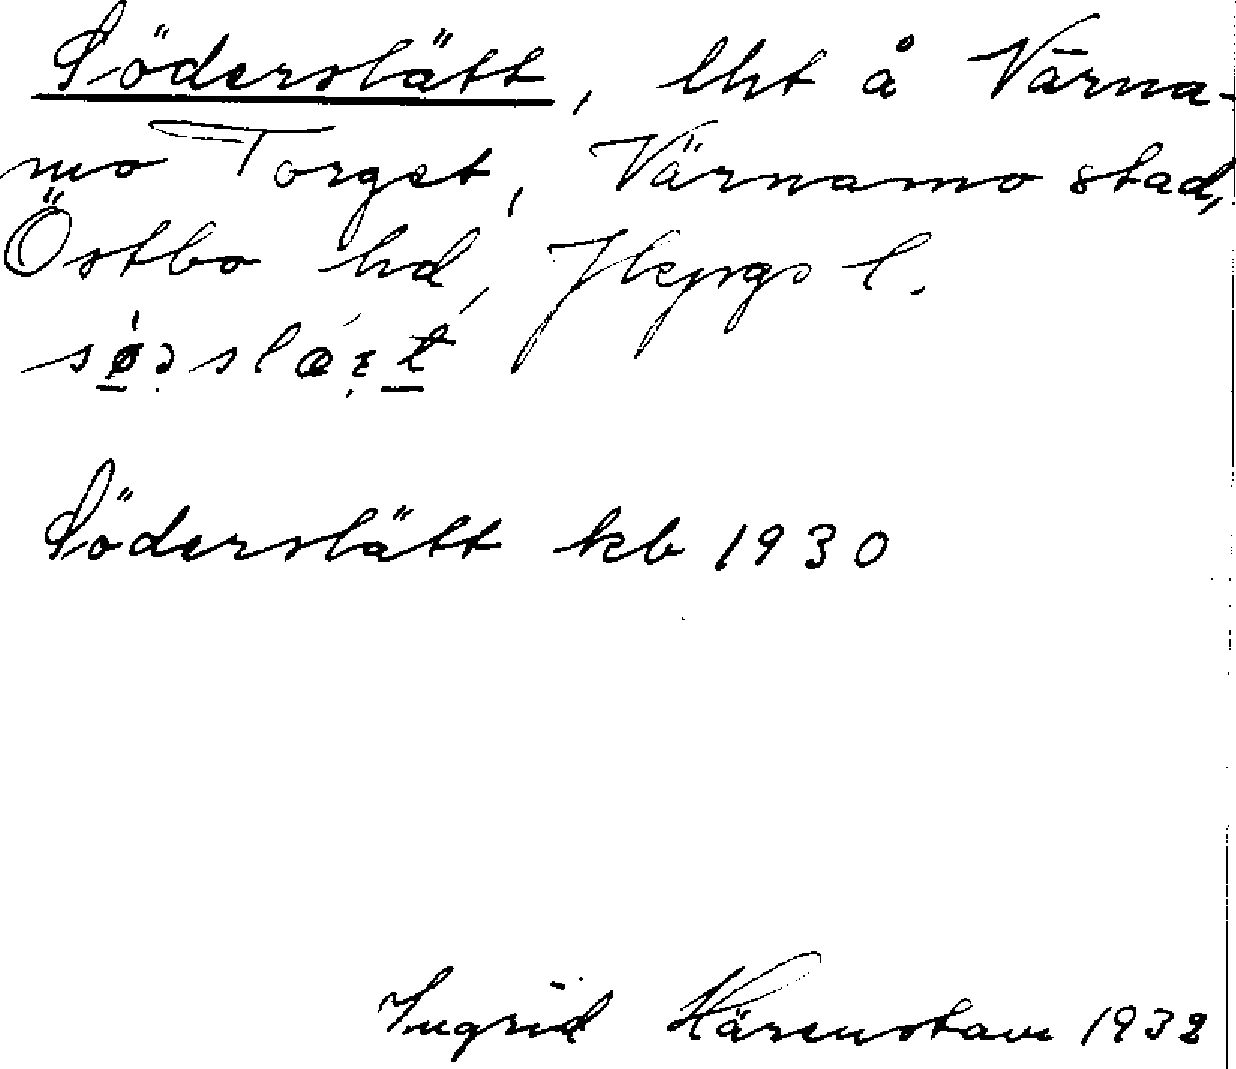 Söderslätt, lht å Värna-
mo Torget, Värnamo stad,
Östbo hd, Jkpgs l.
Söderslätt kb 1930
Ingrid Härenstam 1932